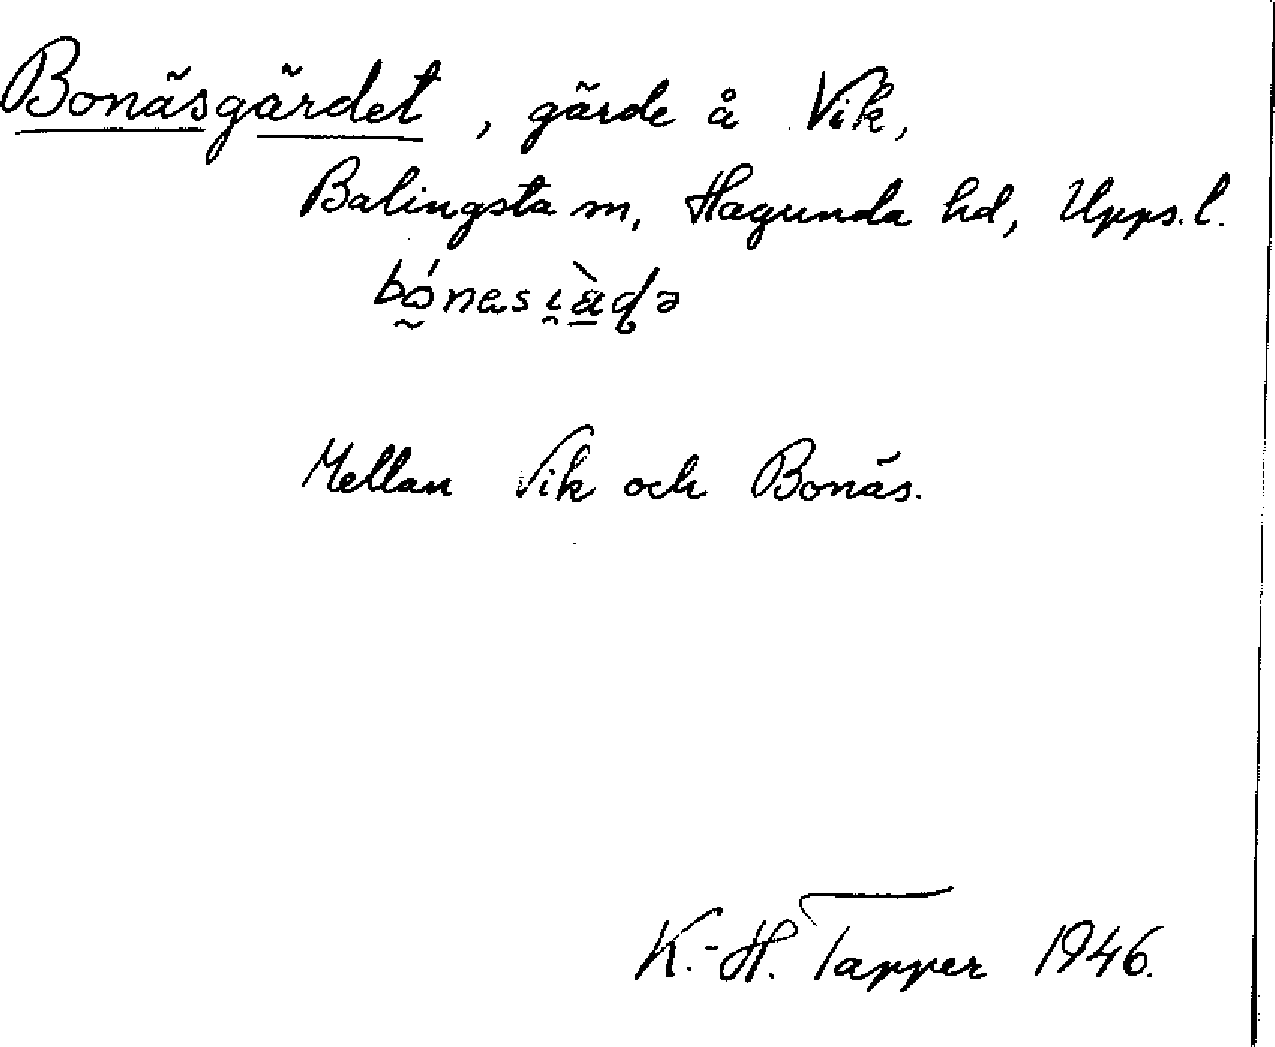 Bonäsgärdet, gärde å Vik,
Balingsta sn, Hagunda hd, Upps. l.
Mellan Vik och Bonäs.
K.-H. Tapper 1946.